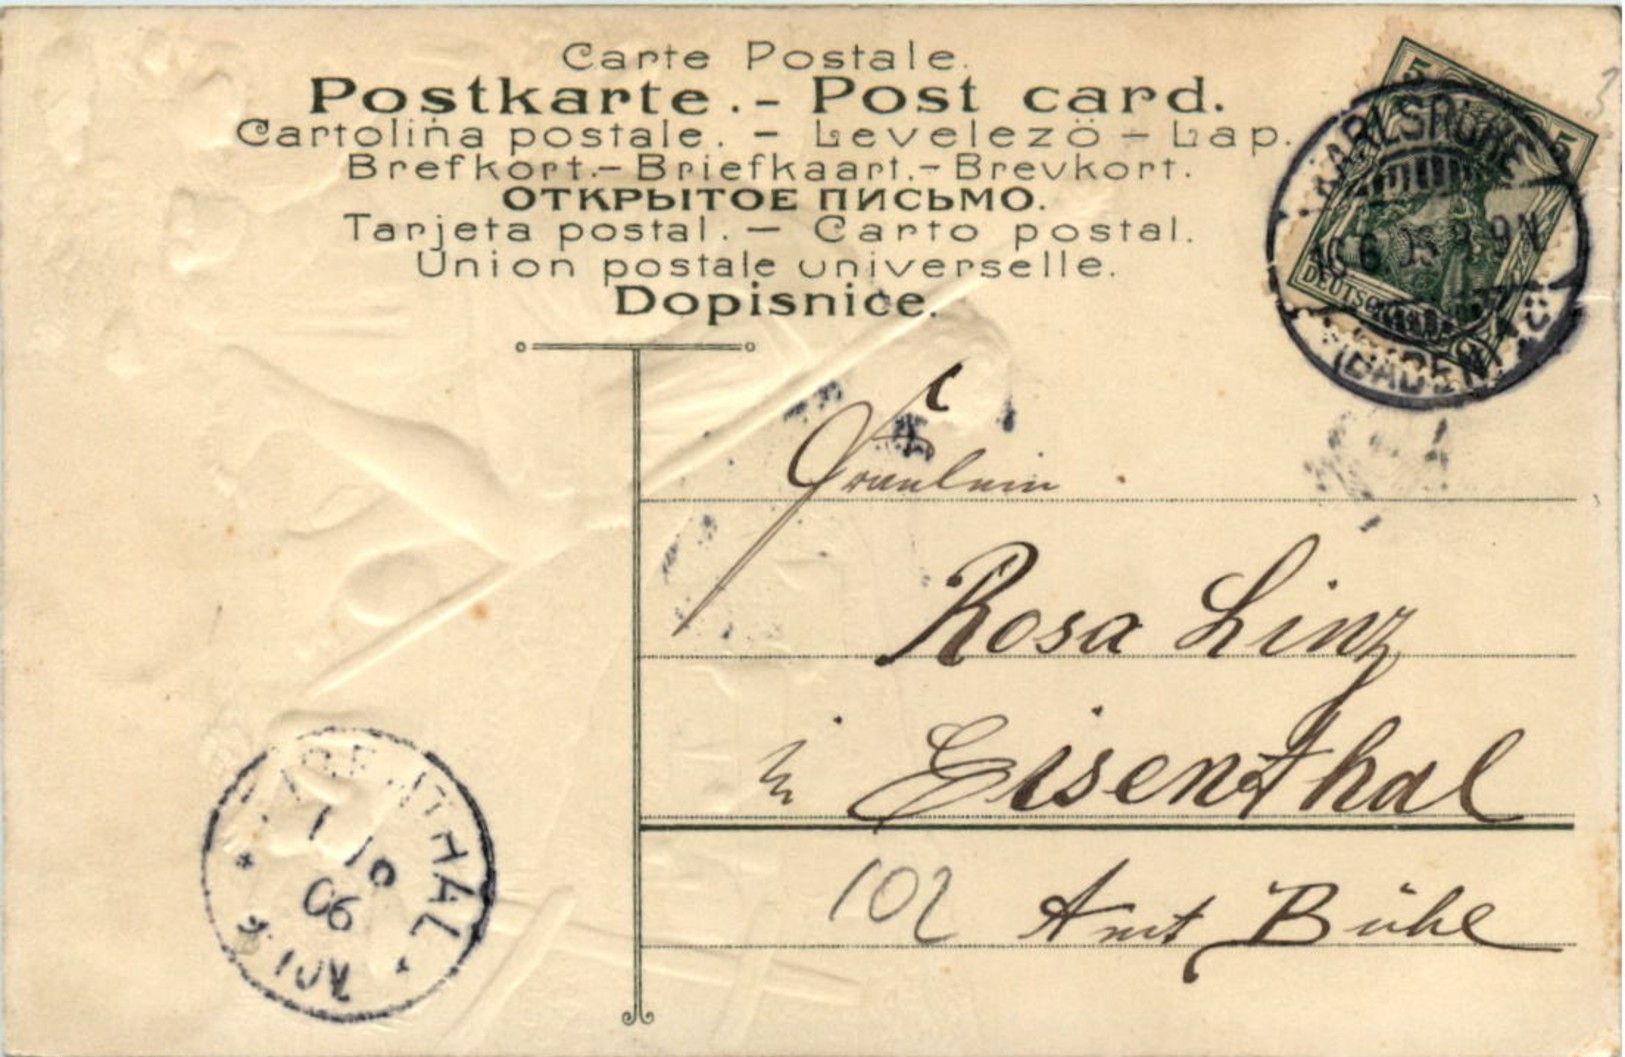 Carte Postale.
Postkarte.- Post card.
Cartolina postale. - Levelezö - Lap.
Brefkort.- Briefkaart.- Brevkort.
ОТКРЫТОЕ ПИСЬМО.
Tarjeta postal. - Carto postal.
Union postale universelle.
Dopisnice.
5 5
KARLSRUHE
6 8-9N
(BADEN)
Fräulein
Rosa Linz
in Eisenthal
102 Amt Bühl
THAL
06